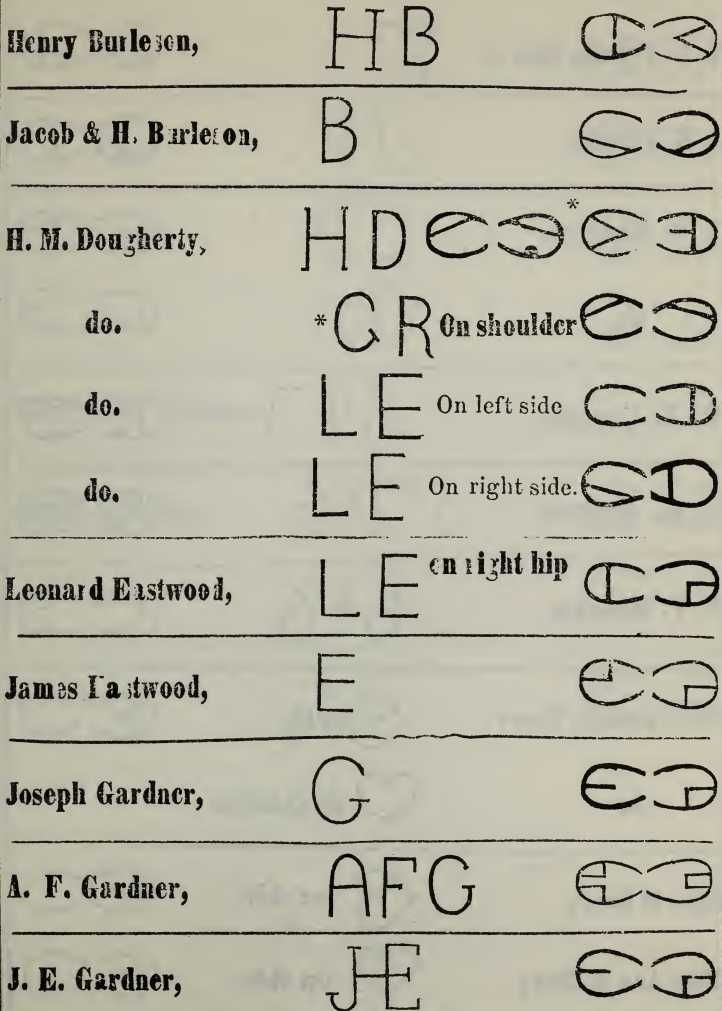 Henry Burleson, H B
Jacob & H. Burleson, B
H. M. Dougherty, H D *
do. * G R On shoulder
do. L E On left side
do. L E On right side.
Leonard Eastwood, L E on right hip
James Eastwood, E
Joseph Gardner, G
A. F. Gardner, A F G
J. E. Gardner, JE